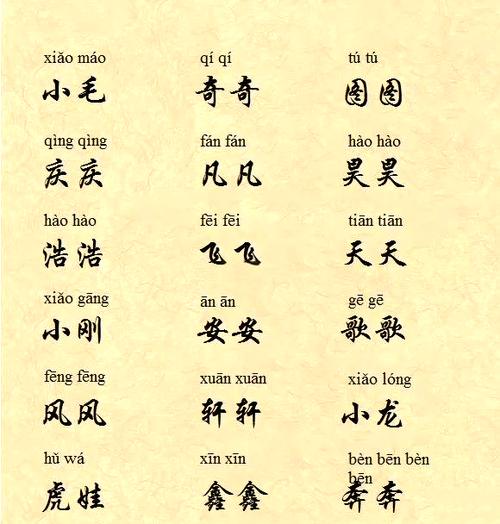 xiǎo máo qí qí tú tú
小毛 奇奇 图图
qìng qìng fán fán hào hào
庆庆 凡凡 昊昊
hào hào fēi fēi tiān tiān
浩浩 飞飞 天天
xiǎo gāng ān ān gē gē
小刚 安安 歌歌
fēng fēng xuān xuān xiǎo lóng
风风 轩轩 小龙
hǔ wá xīn xīn bèn bēn bèn
bēn
虎娃 鑫鑫 奔奔